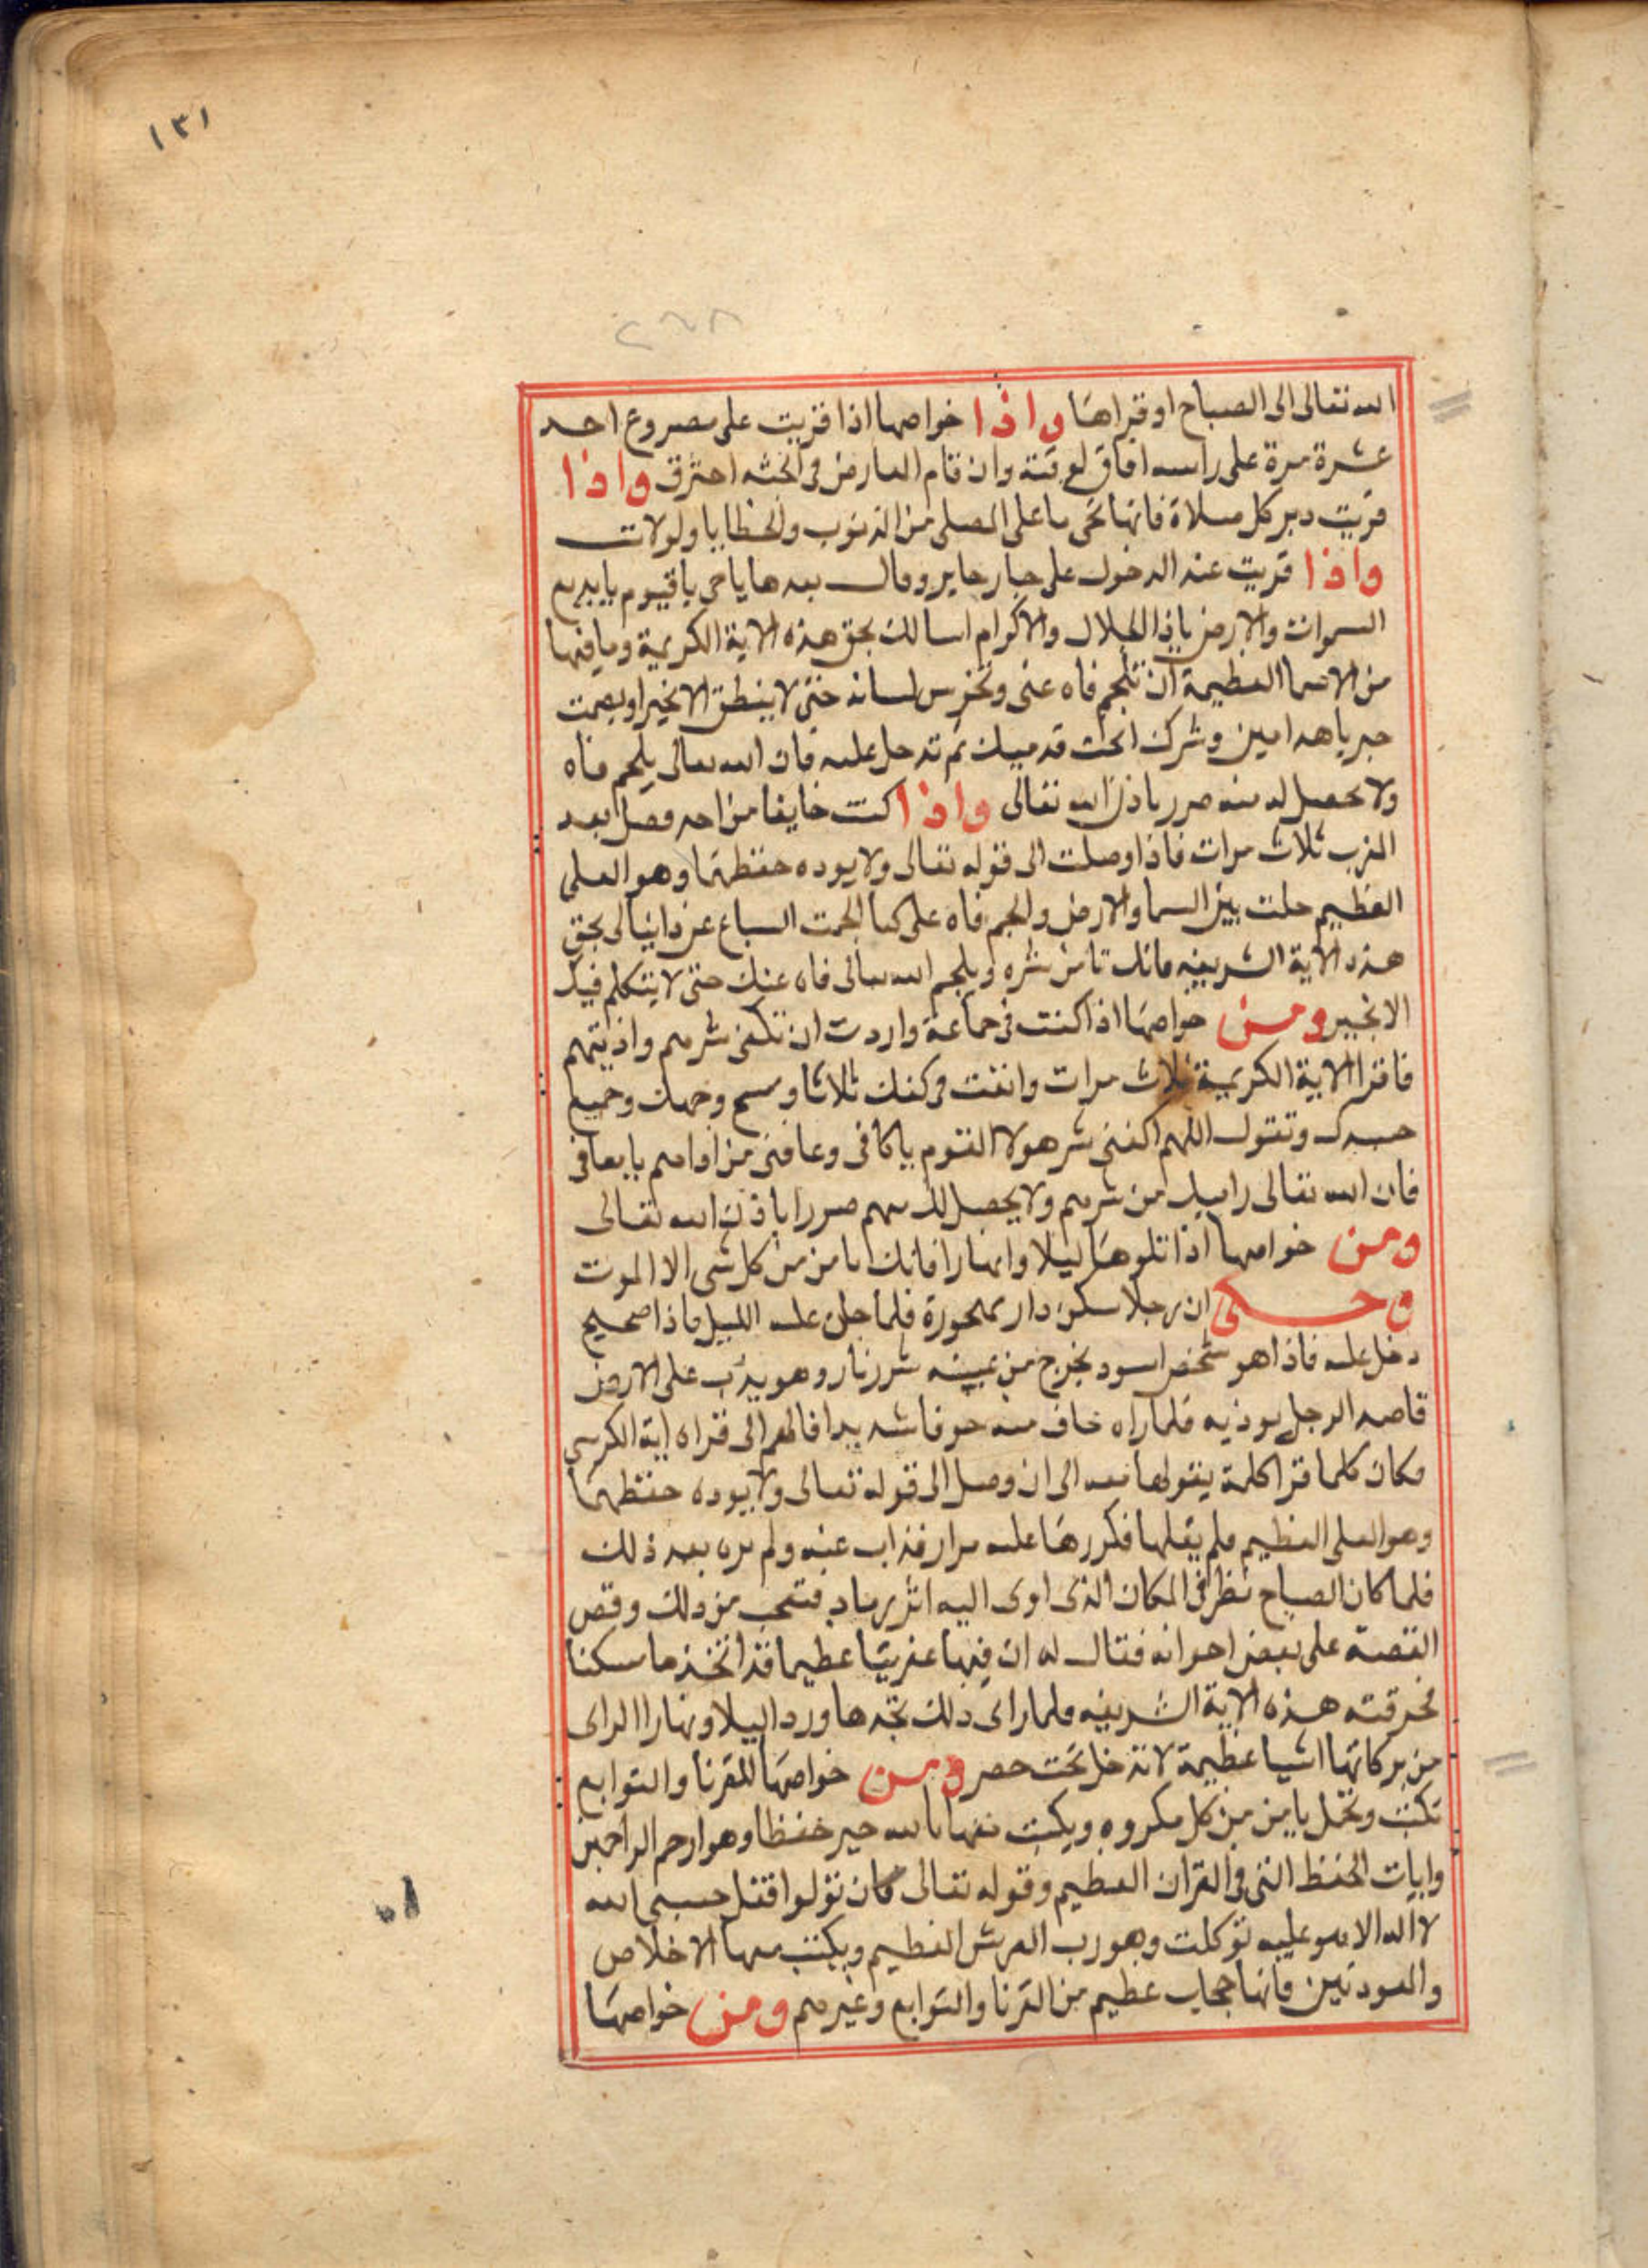 ١٣١
٢٦٨
الله تعالى الى الصباح او قراها واذا خواصها اذا قريت على مصروع احد
عشرة مرة على راسه افاق لوقته وان قام العارض فى الجثه احترق واذا
قريت دبر كل صلاة فانها تمحى ما على المصلى من الذنوب والخطايا ولو لات
واذا قريت عند الدخول على جبار جاير وقال بعدها يا حى يا قيوم يا بديع
السموات والارض يا ذا الجلال والاكرام اسالك بحق هذه الاية الكريمة وما فيها
من الاسما العظيمة ان تلجم فاه عنى وتخرس لسانه حتى لا ينطق الا بخير او يصمت
وشرك تحت قدميك ثم تدخل عليه فان الله تعالى يلجم فاه
ولا يحصل له منه ضرر باذن الله تعالى واذا كنت خايفا من احد فصل بعد
المغرب ثلاث مرات فاذا وصلت الى قوله تعالى ولا يوده حفظهما وهو العلى
العظيم حلت بين السما والارض والجم فاه على كما الجمت السباع عن دانيال بحق
هذه الاية الشريفه فانك تامن شره ويلجم الله تعالى فاه عنك حتى لا يتكلم فيك
الا بخير ومن خواصها اذا كنت فى جماعة واردت ان تكفى شرهم واذيتهم
فاقرا الاية الكريمة ثلاث مرات وانفث فى كفك ثلاثا وامسح وجهك وجميع
جسدك وتقول اللهم اكفنى شر هولا القوم يا كافى وعافنى من اذاهم يا معافى
فان الله تعالى من شرهم ولا يحصل لك منهم ضررا باذن الله تعالى
ومن خواصها اذا تلوها ليلا وانهارا فانك تامن من كل شى الا الموت
وحكى ان رجلا سكن دار مهجورة فلما جن عليه الليل فاذا صحيح
دخل عليه فاذا هو شخص اسود يخرج من عينه شرر نار وهو يدب على الارض
قاصد الرجل يوذيه فلما راه خاف منه خوفا شديدا فالهم الى قراه اية الكرسى
فكان كلما قرا كلمة يقولها معه الى ان وصل الى قوله تعالى ولا يوده حفظهما
وهو العلى العظيم فلم يقلها فكررها عليه مرار فذاب عنه ولم يره بعد ذلك
فلما كان الصباح نظر فى المكان الذى اوى اليه اثر رماد فتعجب من ذلك وقص
القصة على بعض اخوانه فقال له ان فيها عفريتا عظيما قد اتخذها سكنا
فحرقته هذه الاية الشريفه فلما راى ذلك تخدها وردا ليلا ونهارا الراى
من بركاتها اشيا عظيمة لا تدخل تحت حصر ومن خواصها للقرنا والتوابع
تكتب وتحمل يا من من كل مكروه ويكتب معها فالله خير حفظا وهو ارحم الراحمين
وايات الحفظ التى فى القران العظيم وقوله تعالى فان تولوا فقل حسبى الله
لا اله الا هو عليه توكلت وهو رب العرش العظيم ويكتب معها الاخلاص
والمعودتين فانها حجاب عظيم من القرنا والتوابع وغيرهم ومن خواصها